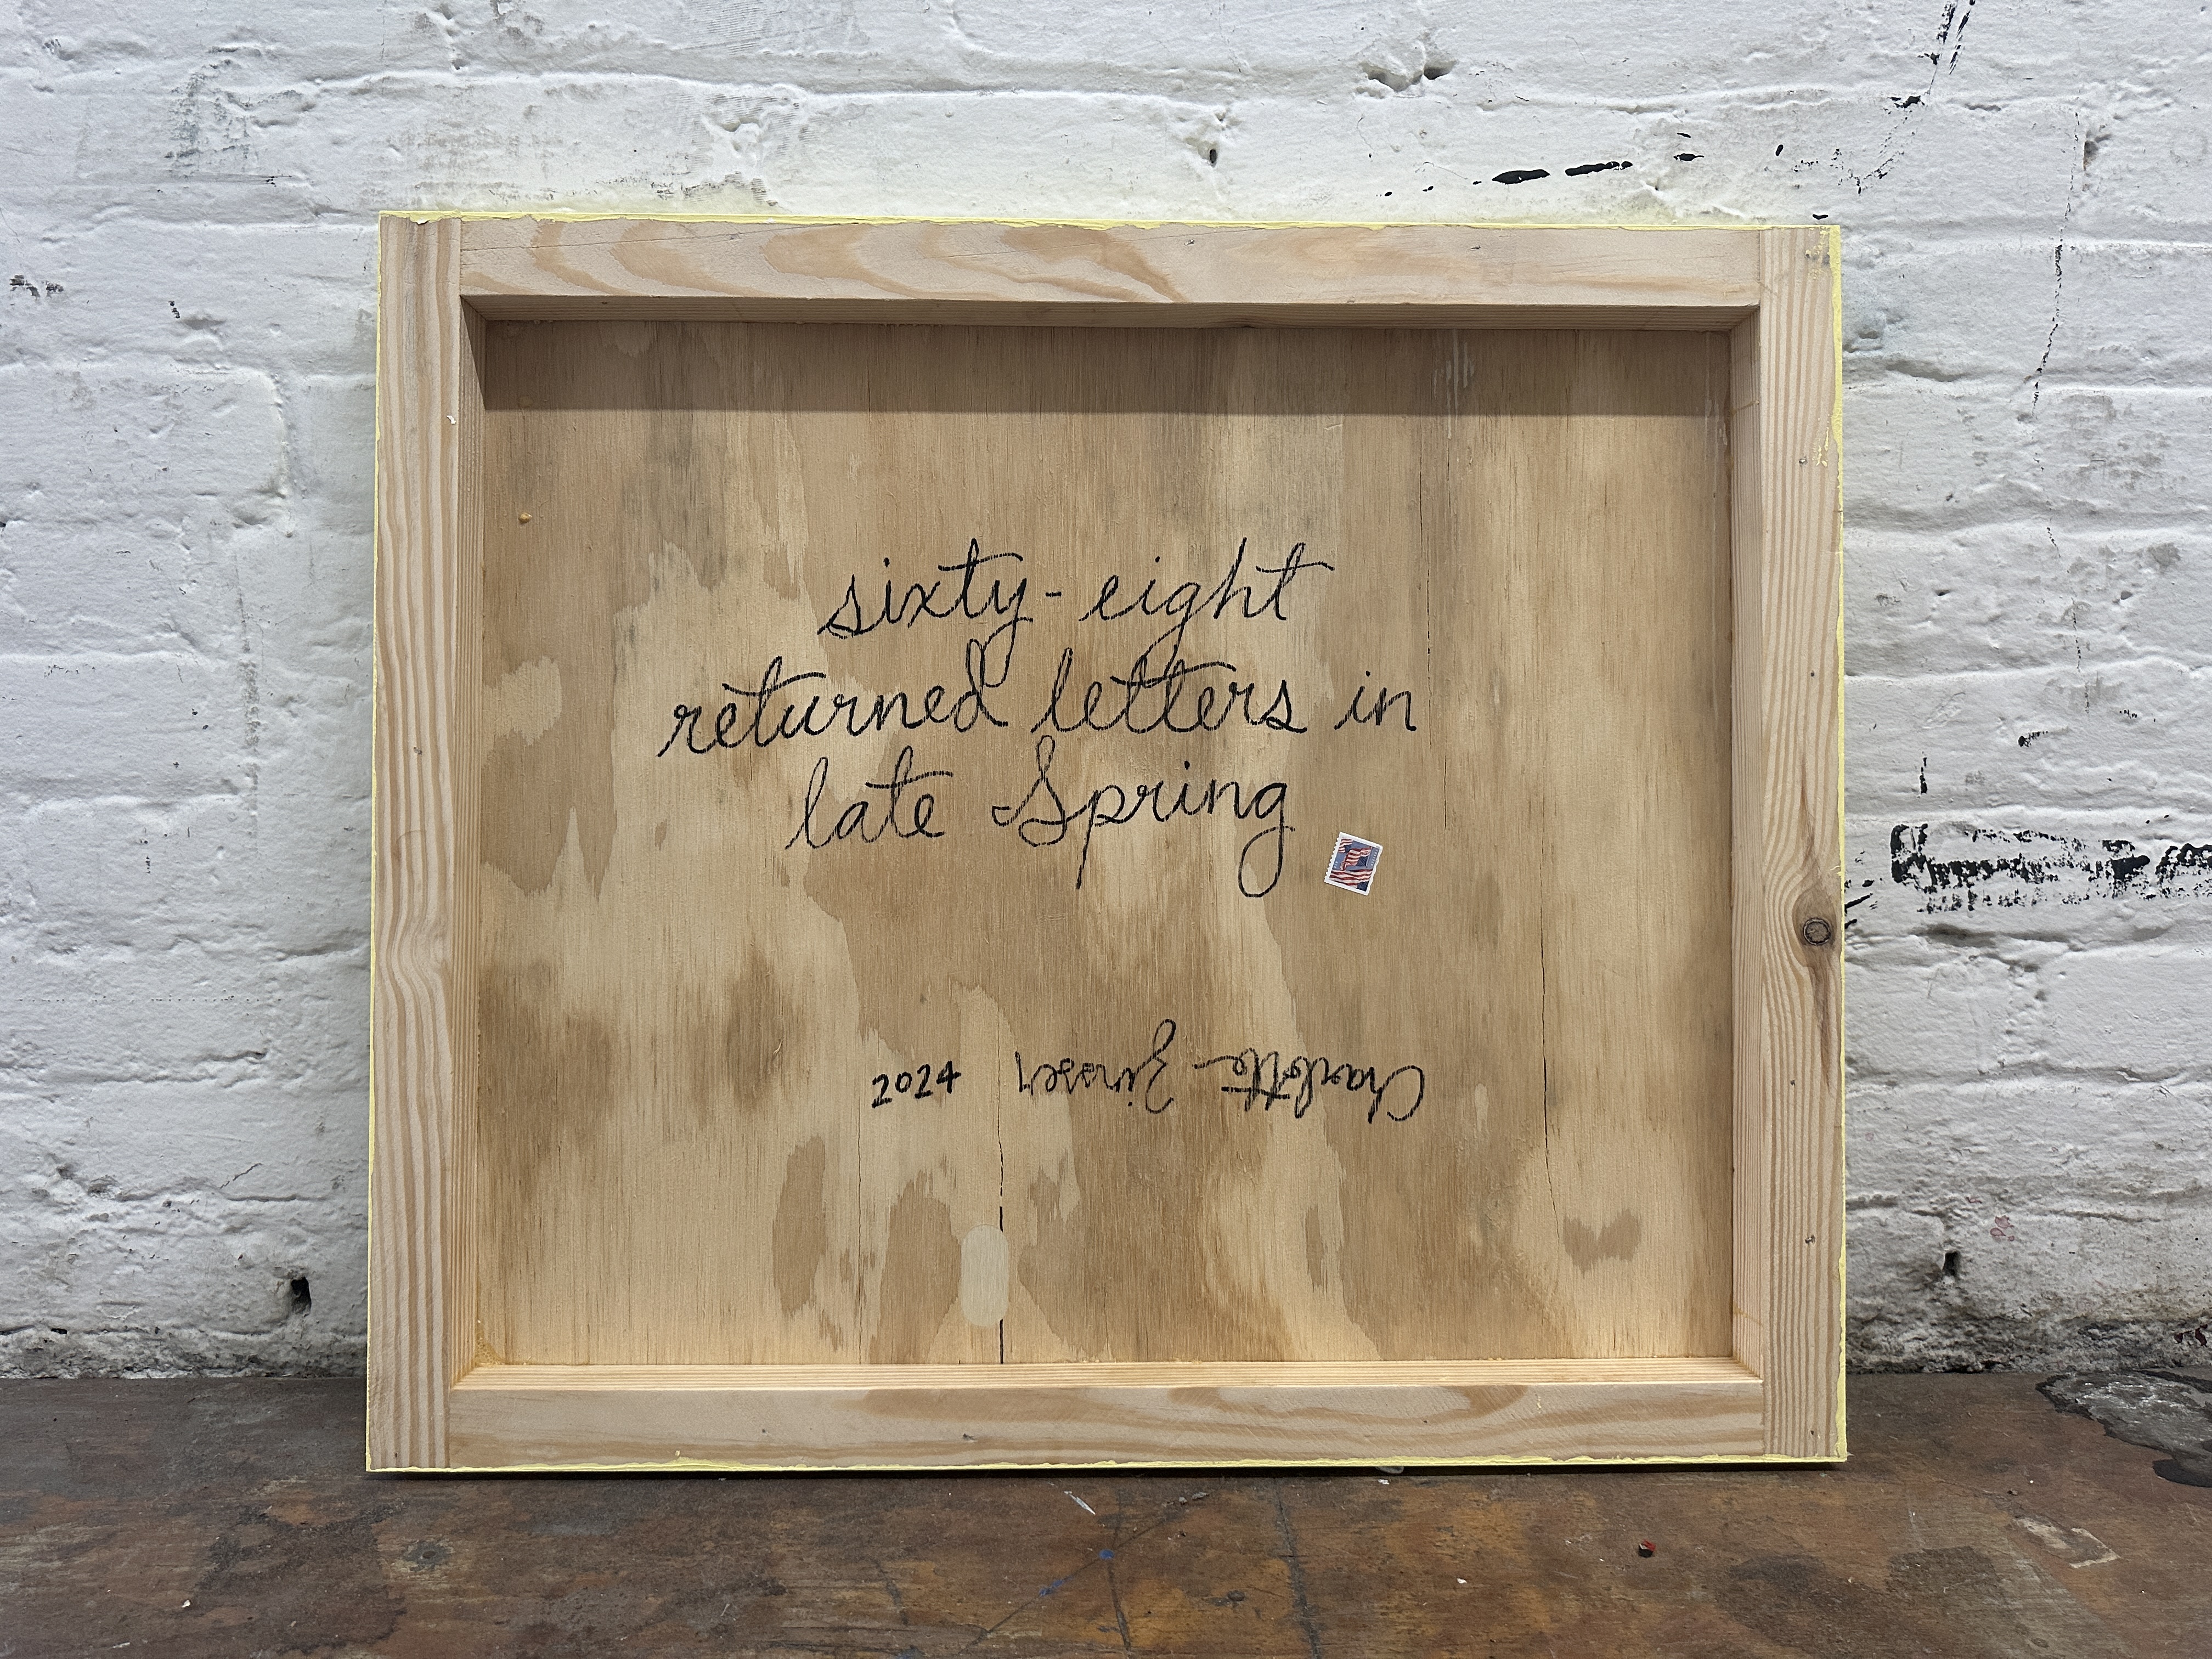 sixty-eight
returned letters in
late Spring
Charlotte Zinsser 2024